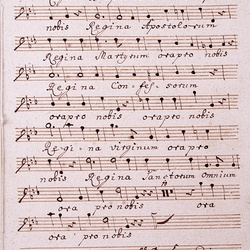 nobis Regina Apostolorum
Regina Martyrum ora pro nobis
Regina Con=fes=sorum
ora pro nobis ora pro nobis
Re=gi=na Virginum ora pro
nobis Regina Sanctorum Omnium
ora pro nobis ora
ora pro nobis